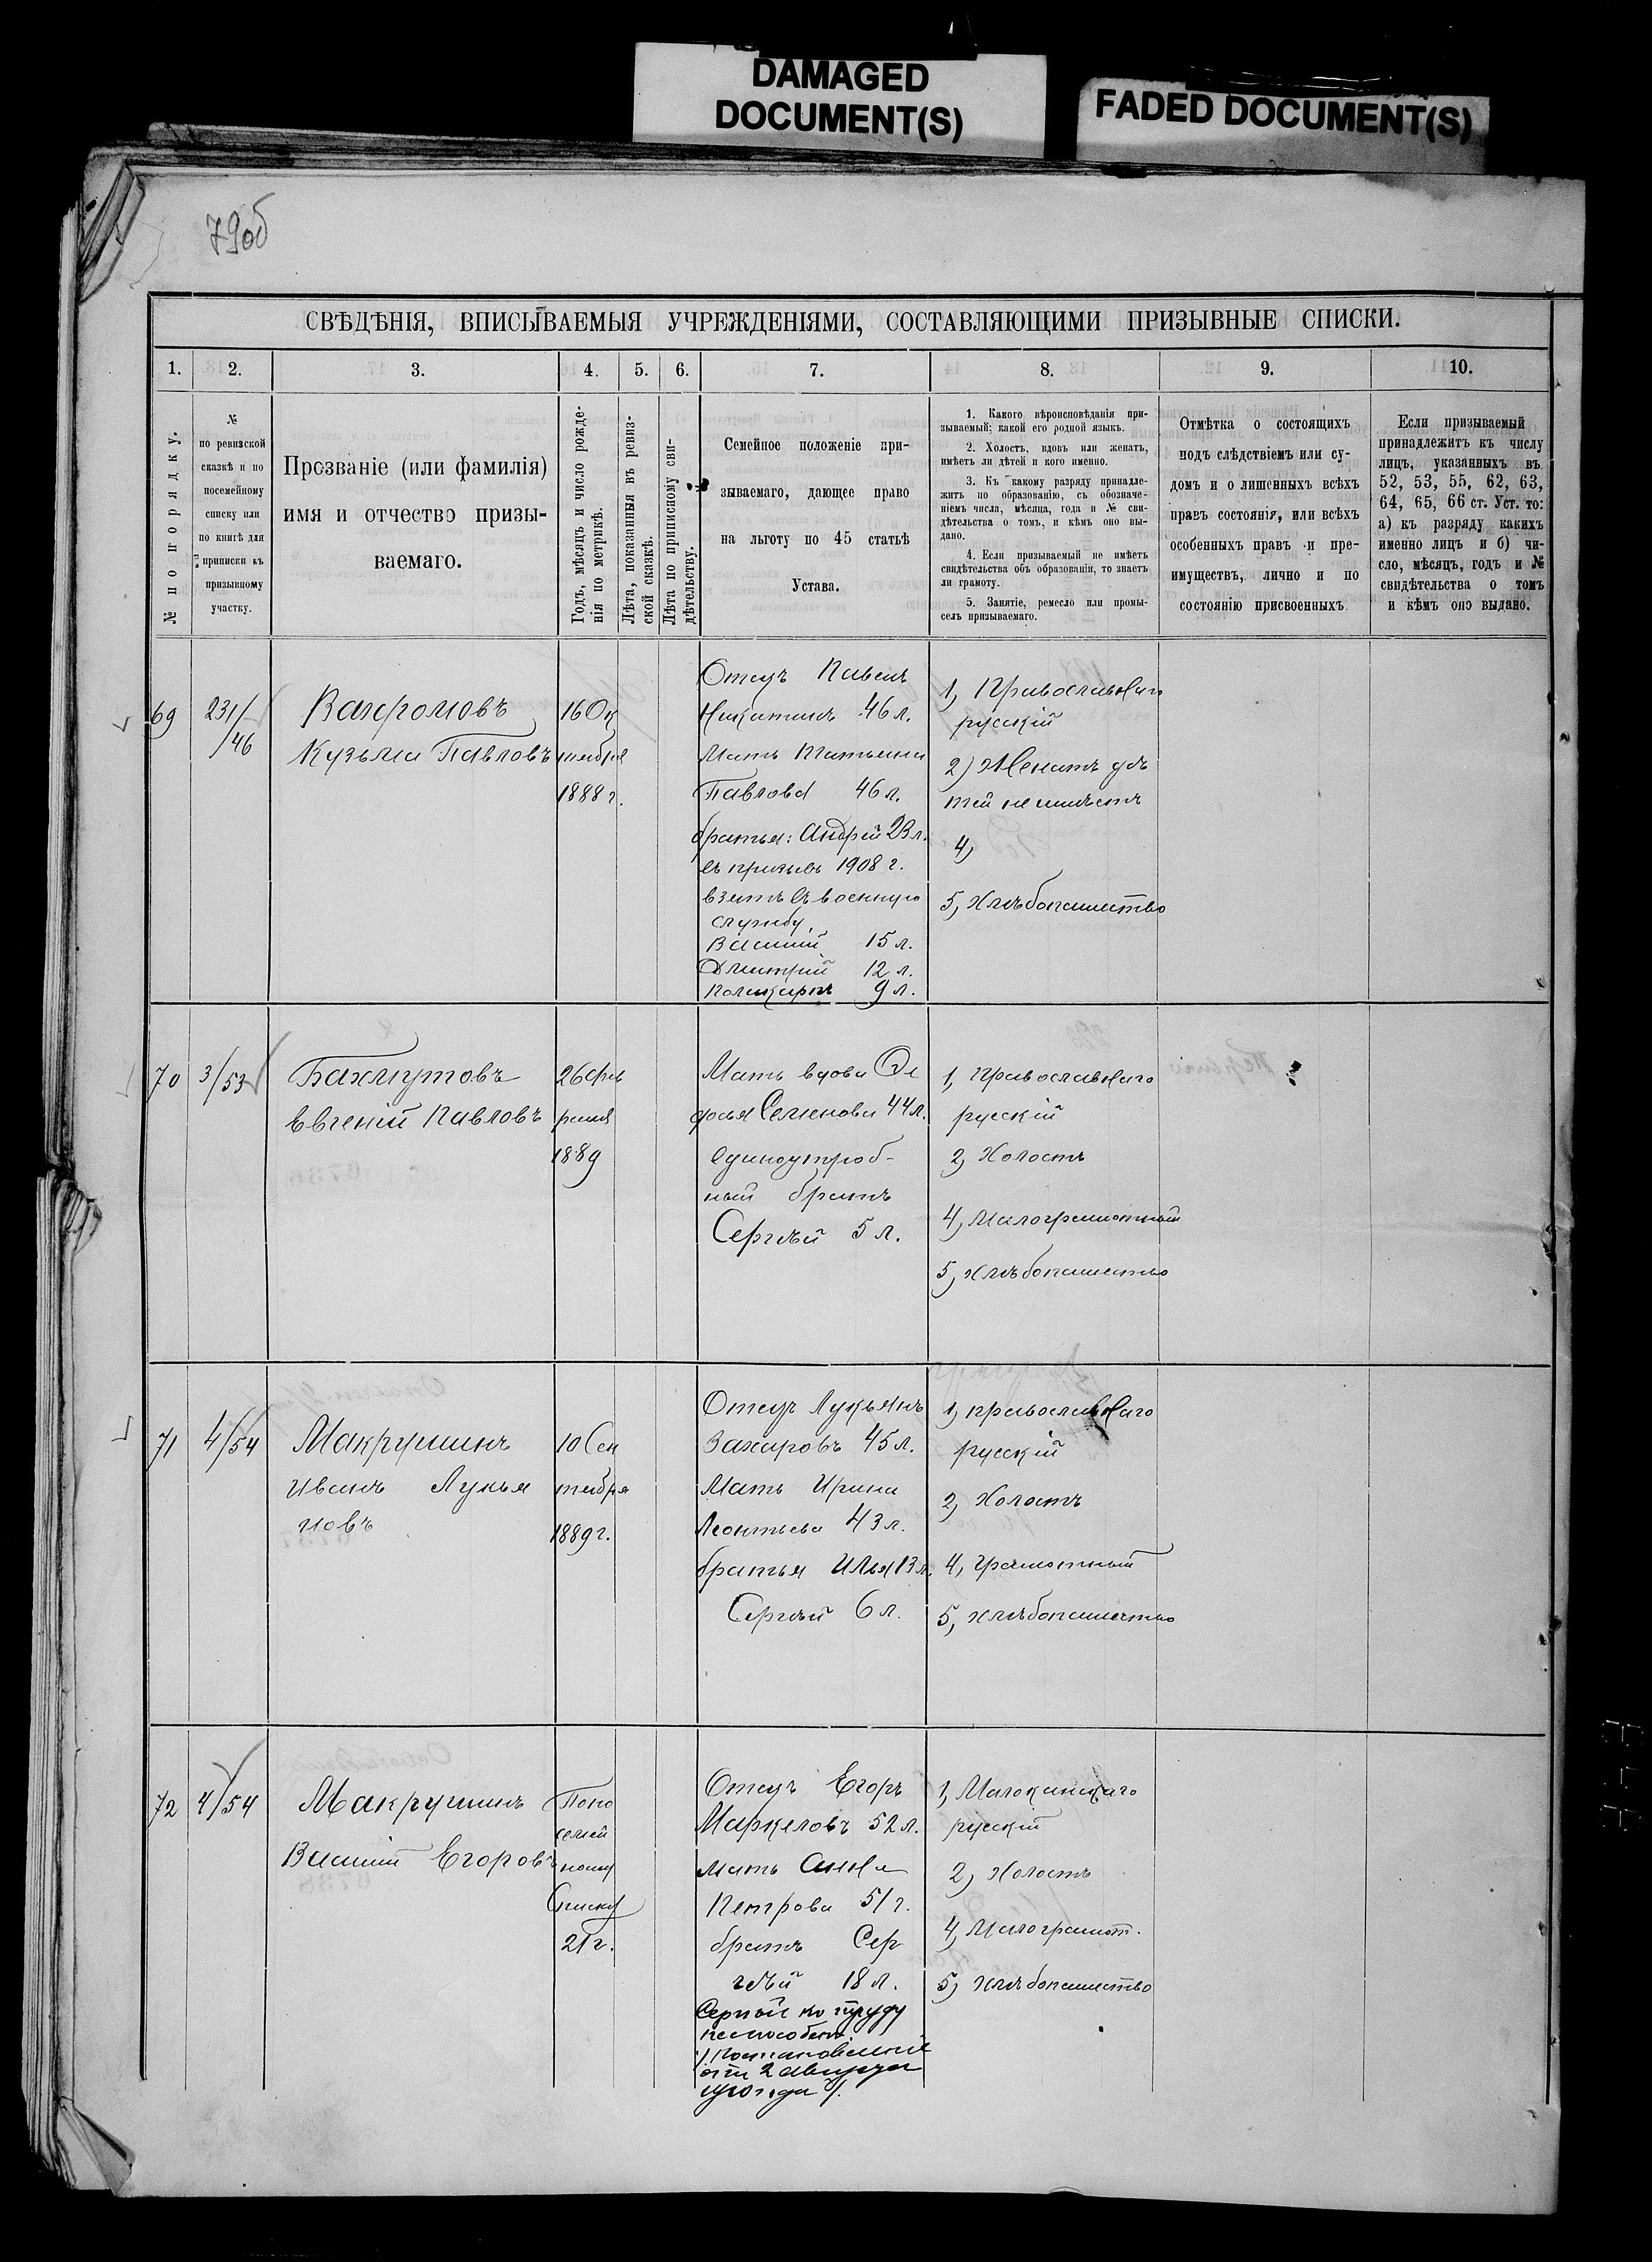 DAMAGED
DOCUMENT(S)
FADED DOCUMENT(S)
79об
СВѢДѢНІЯ, ВПИСЫВАЕМЫЯ УЧРЕЖДЕНІЯМИ, СОСТАВЛЯЮЩИМИ ПРИЗЫВНЫЕ СПИСКИ.
1.
2.
3.
4.
5.
6.
7.
8.
9.
10.
№ по порядку.
№
по ревизской
сказкѣ и по
посемейному
списку или
по книгѣ для
приписки къ
призывному
участку.
Прозваніе (или фамилія)
имя и отчество призы-
ваемаго.
Годъ, мѣсяцъ и число рожде-
нія по метрикѣ.
Лѣта, показанныя въ ревиз-
ской сказкѣ.
Лѣта по приписному сви-
дѣтельству.
Семейное положеніе при-
зываемаго, дающее право
на льготу по 45 статьѣ
Устава.
1. Какого вѣроисповѣданія при-
зываемый; какой его родной языкъ.
2. Холостъ, вдовъ или женатъ,
имѣетъ ли дѣтей и кого именно.
3. Къ какому разряду принадле-
житъ по образованію, съ обозначе-
ніемъ числа, мѣсяца, года и № сви-
дѣтельства о томъ, и кѣмъ оно вы-
дано.
4. Если призываемый не имѣетъ
свидѣтельства объ образованіи, то знаетъ
ли грамоту.
5. Занятіе, ремесло или промы-
селъ призываемаго.
Отмѣтка о состоящихъ
подъ слѣдствіемъ или су-
домъ и о лишенныхъ всѣхъ
правъ состоянія, или всѣхъ
особенныхъ правъ и пре-
имуществъ, лично и по
состоянію присвоенныхъ
Если призываемый
принадлежитъ къ числу
лицъ, указанныхъ въ
52, 53, 55, 62, 63,
64, 65, 66 ст. Уст. то:
а) къ разряду какихъ
именно лицъ и б) чи-
сло, мѣсяцъ, годъ и №
свидѣтельства о томъ
и кѣмъ оно выдано.
69
231/
/46
Вахромовъ
Кузьма Павловъ
16 Ок
тября
1888 г.
Отецъ Павелъ
Никитинъ 46 л.
Мать Татьяна
Павлова 46 л.
братья: Андрей 23 л.
въ призывъ 1908 г.
взятъ въ военную
службу,
Василій 15 л.
Дмитрій 12 л.
Поликарпъ 9 л.
1, Православнаго
русскій
2) Женатъ дѣ
тей не имѣетъ
4)
5, Хлѣбопашество
70
3/53
Бахмутовъ
Евгеній Павловъ
26 фев
раля
1889
Мать вдова
Семенова 44 л.
единоутроб-
ный братъ
Сергѣй 5 л.
1, Православнаго
русскій
2, Холостъ
4, Малограмотный
5, Хлѣбопашество
71
4/54
Макрушинъ
Иванъ Лукья
новъ
10 Сен
тября
1889 г.
Отецъ Лукьянъ
Захаровъ 45 л.
Мать Ирина
Леонтьева 43 л.
братья Илья 13 л.
Сергѣй 6 л.
1, православнаго
русскій
2, Холостъ
4, грамотный
5, хлѣбопашество
72
4/54
Макрушинъ
Василій Егоровъ
По по
семей
ному
списку
21 г.
Отецъ Егоръ
Маркеловъ 52 л.
мать Анна
Петрова 51 г.
братъ Сер
гѣй 18 л.
Сергѣй къ труду
неспособенъ
/Постановленіе
отъ 2 августа
года/.
1, Малоканскаго
русскій
2, Холостъ
4, Малограмот.
5, хлѣбопашество